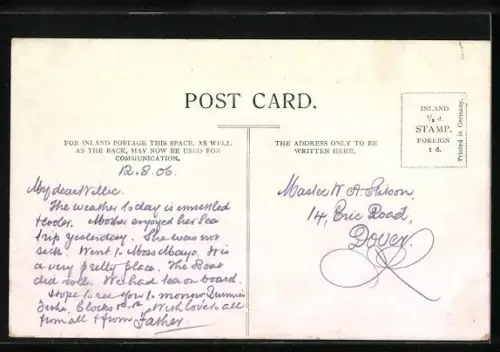 POST CARD.
FOR INLAND POSTAGE THIS SPACE, AS WELL
AS THE BACK, MAY NOW BE USED FOR
COMMUNICATION,
THE ADDRESS ONLY TO BE
WRITTEN HERE.
INLAND
½ d.
STAMP.
FOREIGN
1 d.
Printed in Germany.
12.8.06
My dear Willie.
The weather today is unsettled
& cooler. Mother enjoyed her Sea
trip yesterday. She was not
sick. Went to It is
a very pretty place. The Boat
did roll. We had tea on board.
Hope to see you to morrow
Clocks With love to all
from all & from Father.
Master W. A.
14, Eric Road,
Dover.